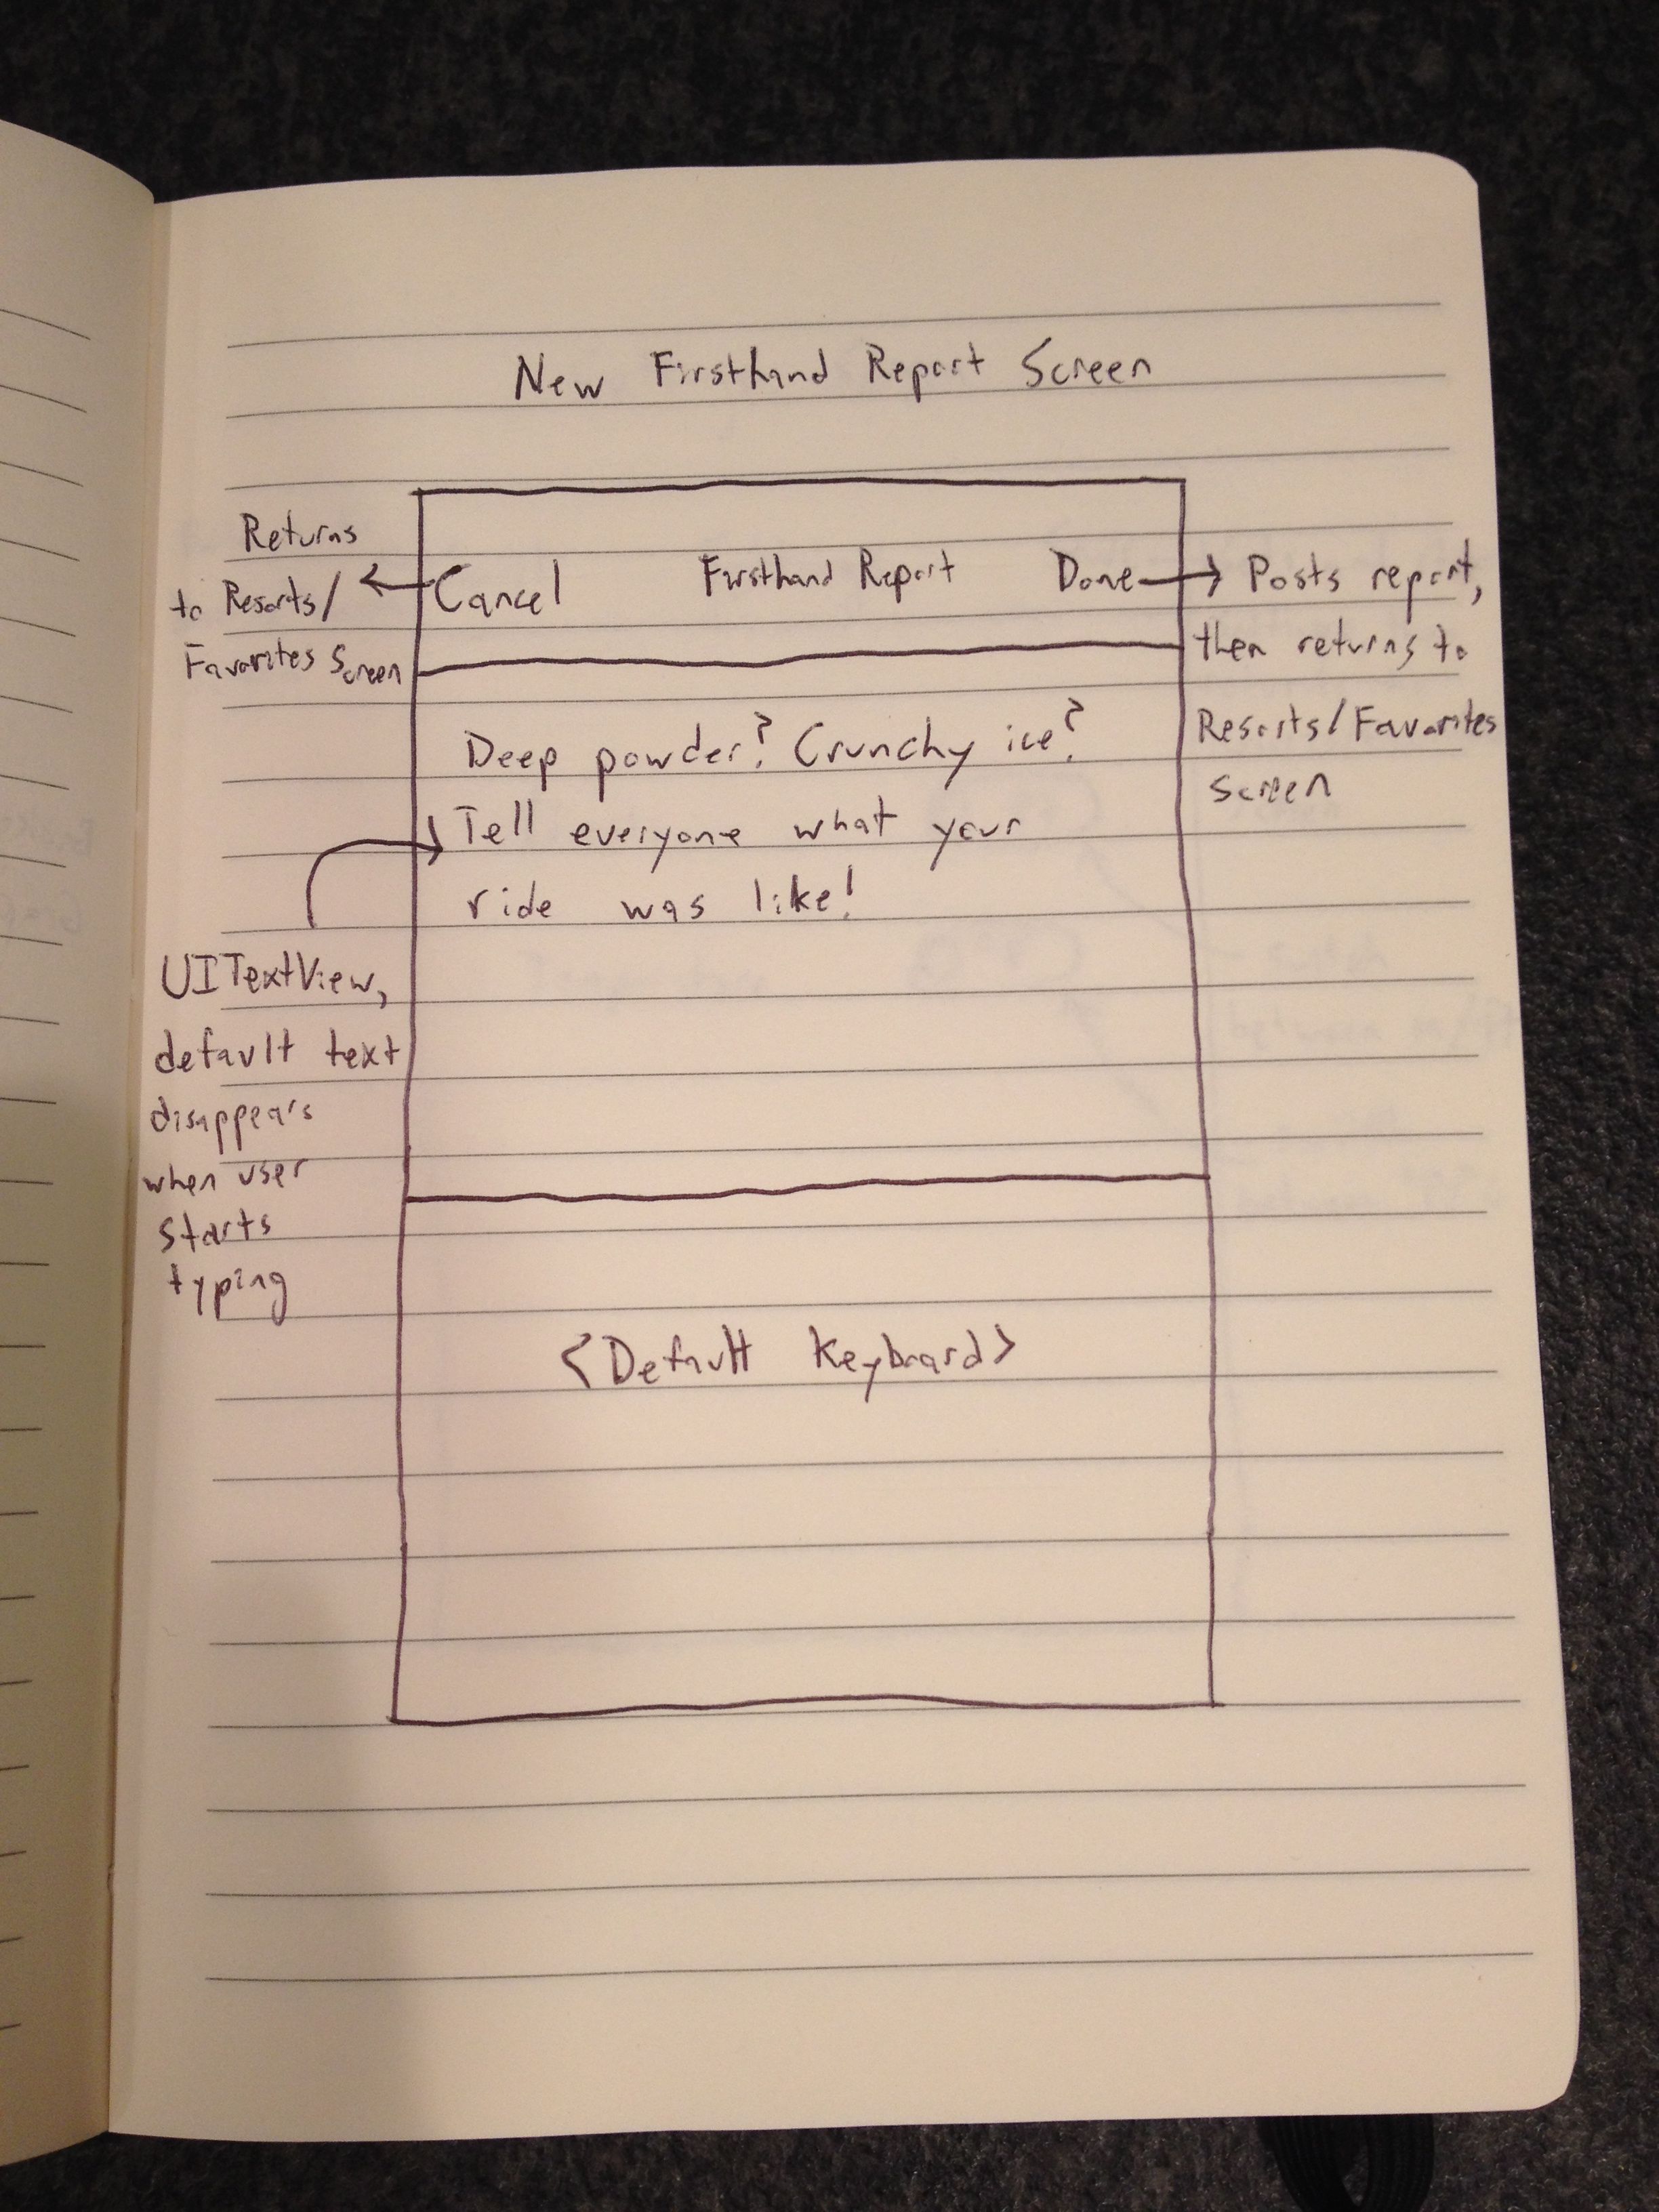 New Firsthand Report Screen
Returns
to Resorts/
Favorites Screen
Cancel
Firsthand Report
Done
Posts report,
then returns to
Resorts/Favorites
screen
Deep powder? Crunchy ice?
Tell everyone what your
ride was like!
UITextView,
default text
disappears
when user
starts
typing
<Default Keyboard>